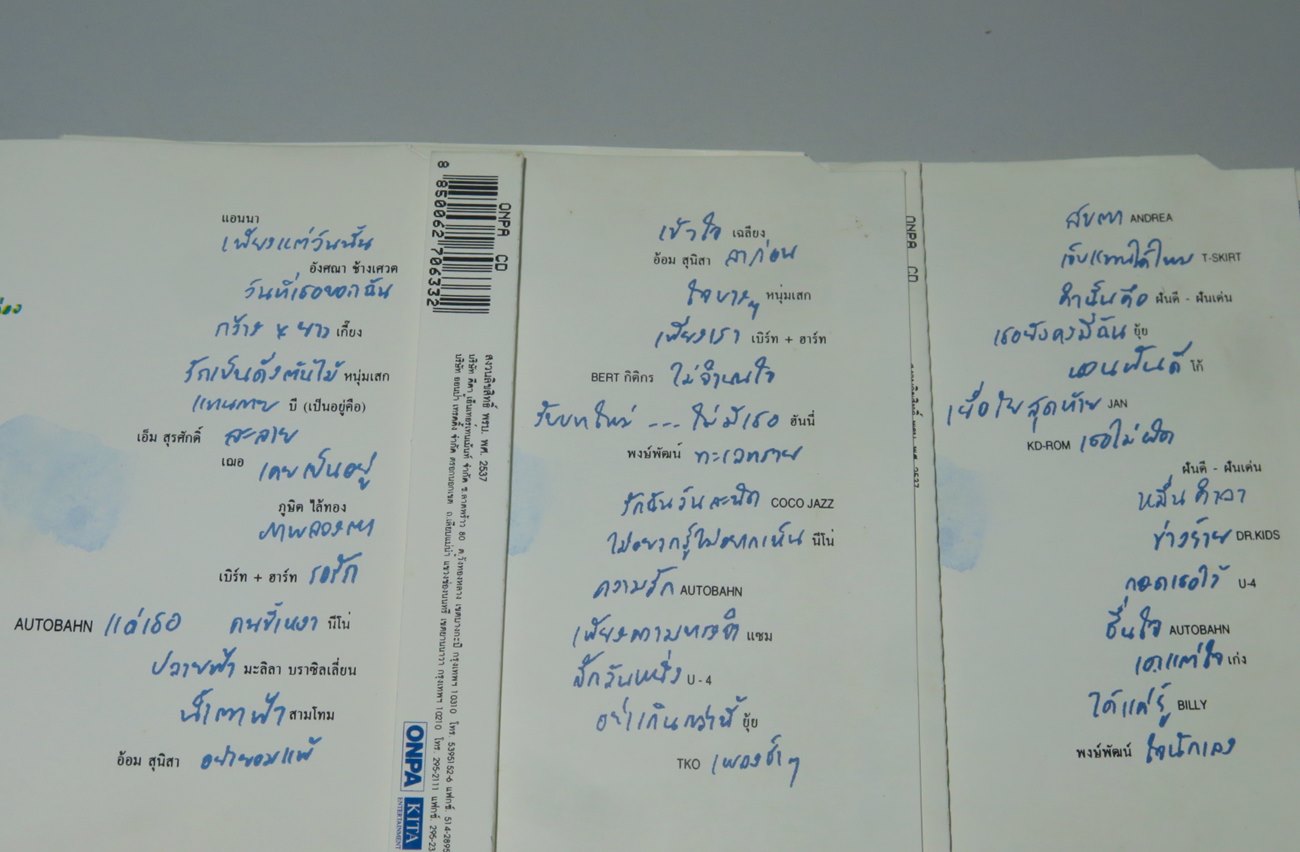 แอนนา
เพียงแต่วันนั้น
อังศณา ช้างเศวต
วันที่เธอบอกฉัน
กว้าง ๆ ยาว เกี๊ยง
รักเป็นดั่งต้นไม้ หนุ่มเสก
แทนกาย บี (เป็นอยู่คือ)
เอ็ม สุรศักดิ์ ละลาย
เฌอ เคยเป็นอยู่
ภูษิต ไล้ทอง
ภาพลวงตา
เบิร์ท + ฮาร์ท รอรัก
AUTOBAHN แด่เธอ คนขี้เหงา นีโน่
ปลายฟ้า มะลิลา บราซิลเลี่ยน
น้ำตาฟ้า สามโทม
อ้อม สุนิสา อย่ายอมแพ้
8 850062 706332
ONPA CD
สงวนลิขสิทธิ์ พรบ. พศ. 2537
ONPA
KITA
ENTERTAINMENT
เข้าใจ เฉลียง
อ้อม สุนิสา ลาก่อน
ใจบางๆ หนุ่มเสก
เพียงเรา เบิร์ท + ฮาร์ท
BERT กิติกร ไม่จำนนใจ
รับบทใหม่ --- ไม่มีเธอ ฮันนี่
พงษ์พัฒน์ ทะเลทราย
รักฉันวันละนิด COCO JAZZ
ไม่อยากรู้ไม่อยากเห็น นีโน่
ความรัก AUTOBAHN
เพียงความทรงจำ แซม
สักวันหนึ่ง U-4
อย่าเกินกว่านี้ ยุ้ย
TKO เพลงช้าๆ
ONPA CD
สบตา ANDREA
เจ็บแทนได้ไหม T-SKIRT
คำนั้นคือ ฝันดี - ฝันเด่น
เธอยังคงมีฉัน ยุ้ย
นอนฝันดี โก้
เยื่อใยสุดท้าย JAN
KD-ROM เธอไม่ผิด
ฝันดี - ฝันเด่น
หมื่นคำลา
ช่างร้าย DR.KIDS
กอดเธอไว้ U-4
ชื่นใจ AUTOBAHN
เอาแต่ใจ เก่ง
ได้แค่รู้ BILLY
พงษ์พัฒน์ ใจนักเลง